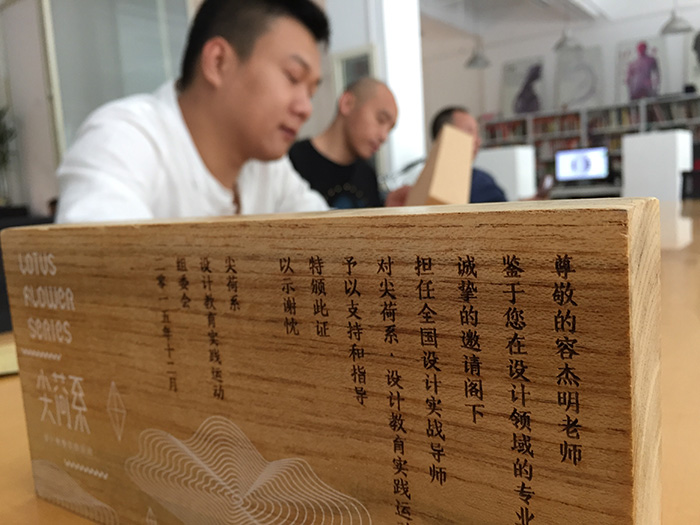 尊敬的容杰明老师
鉴于您在设计领域的专业
诚挚的邀请阁下
担任全国设计实战导师
对尖荷系·设计教育实践运
予以支持和指导
特颁此证
以示谢忱
尖荷系
设计教育实践运动
组委会
二零一五年十二月
LOTUS
FLOWER
SERIES
尖荷系